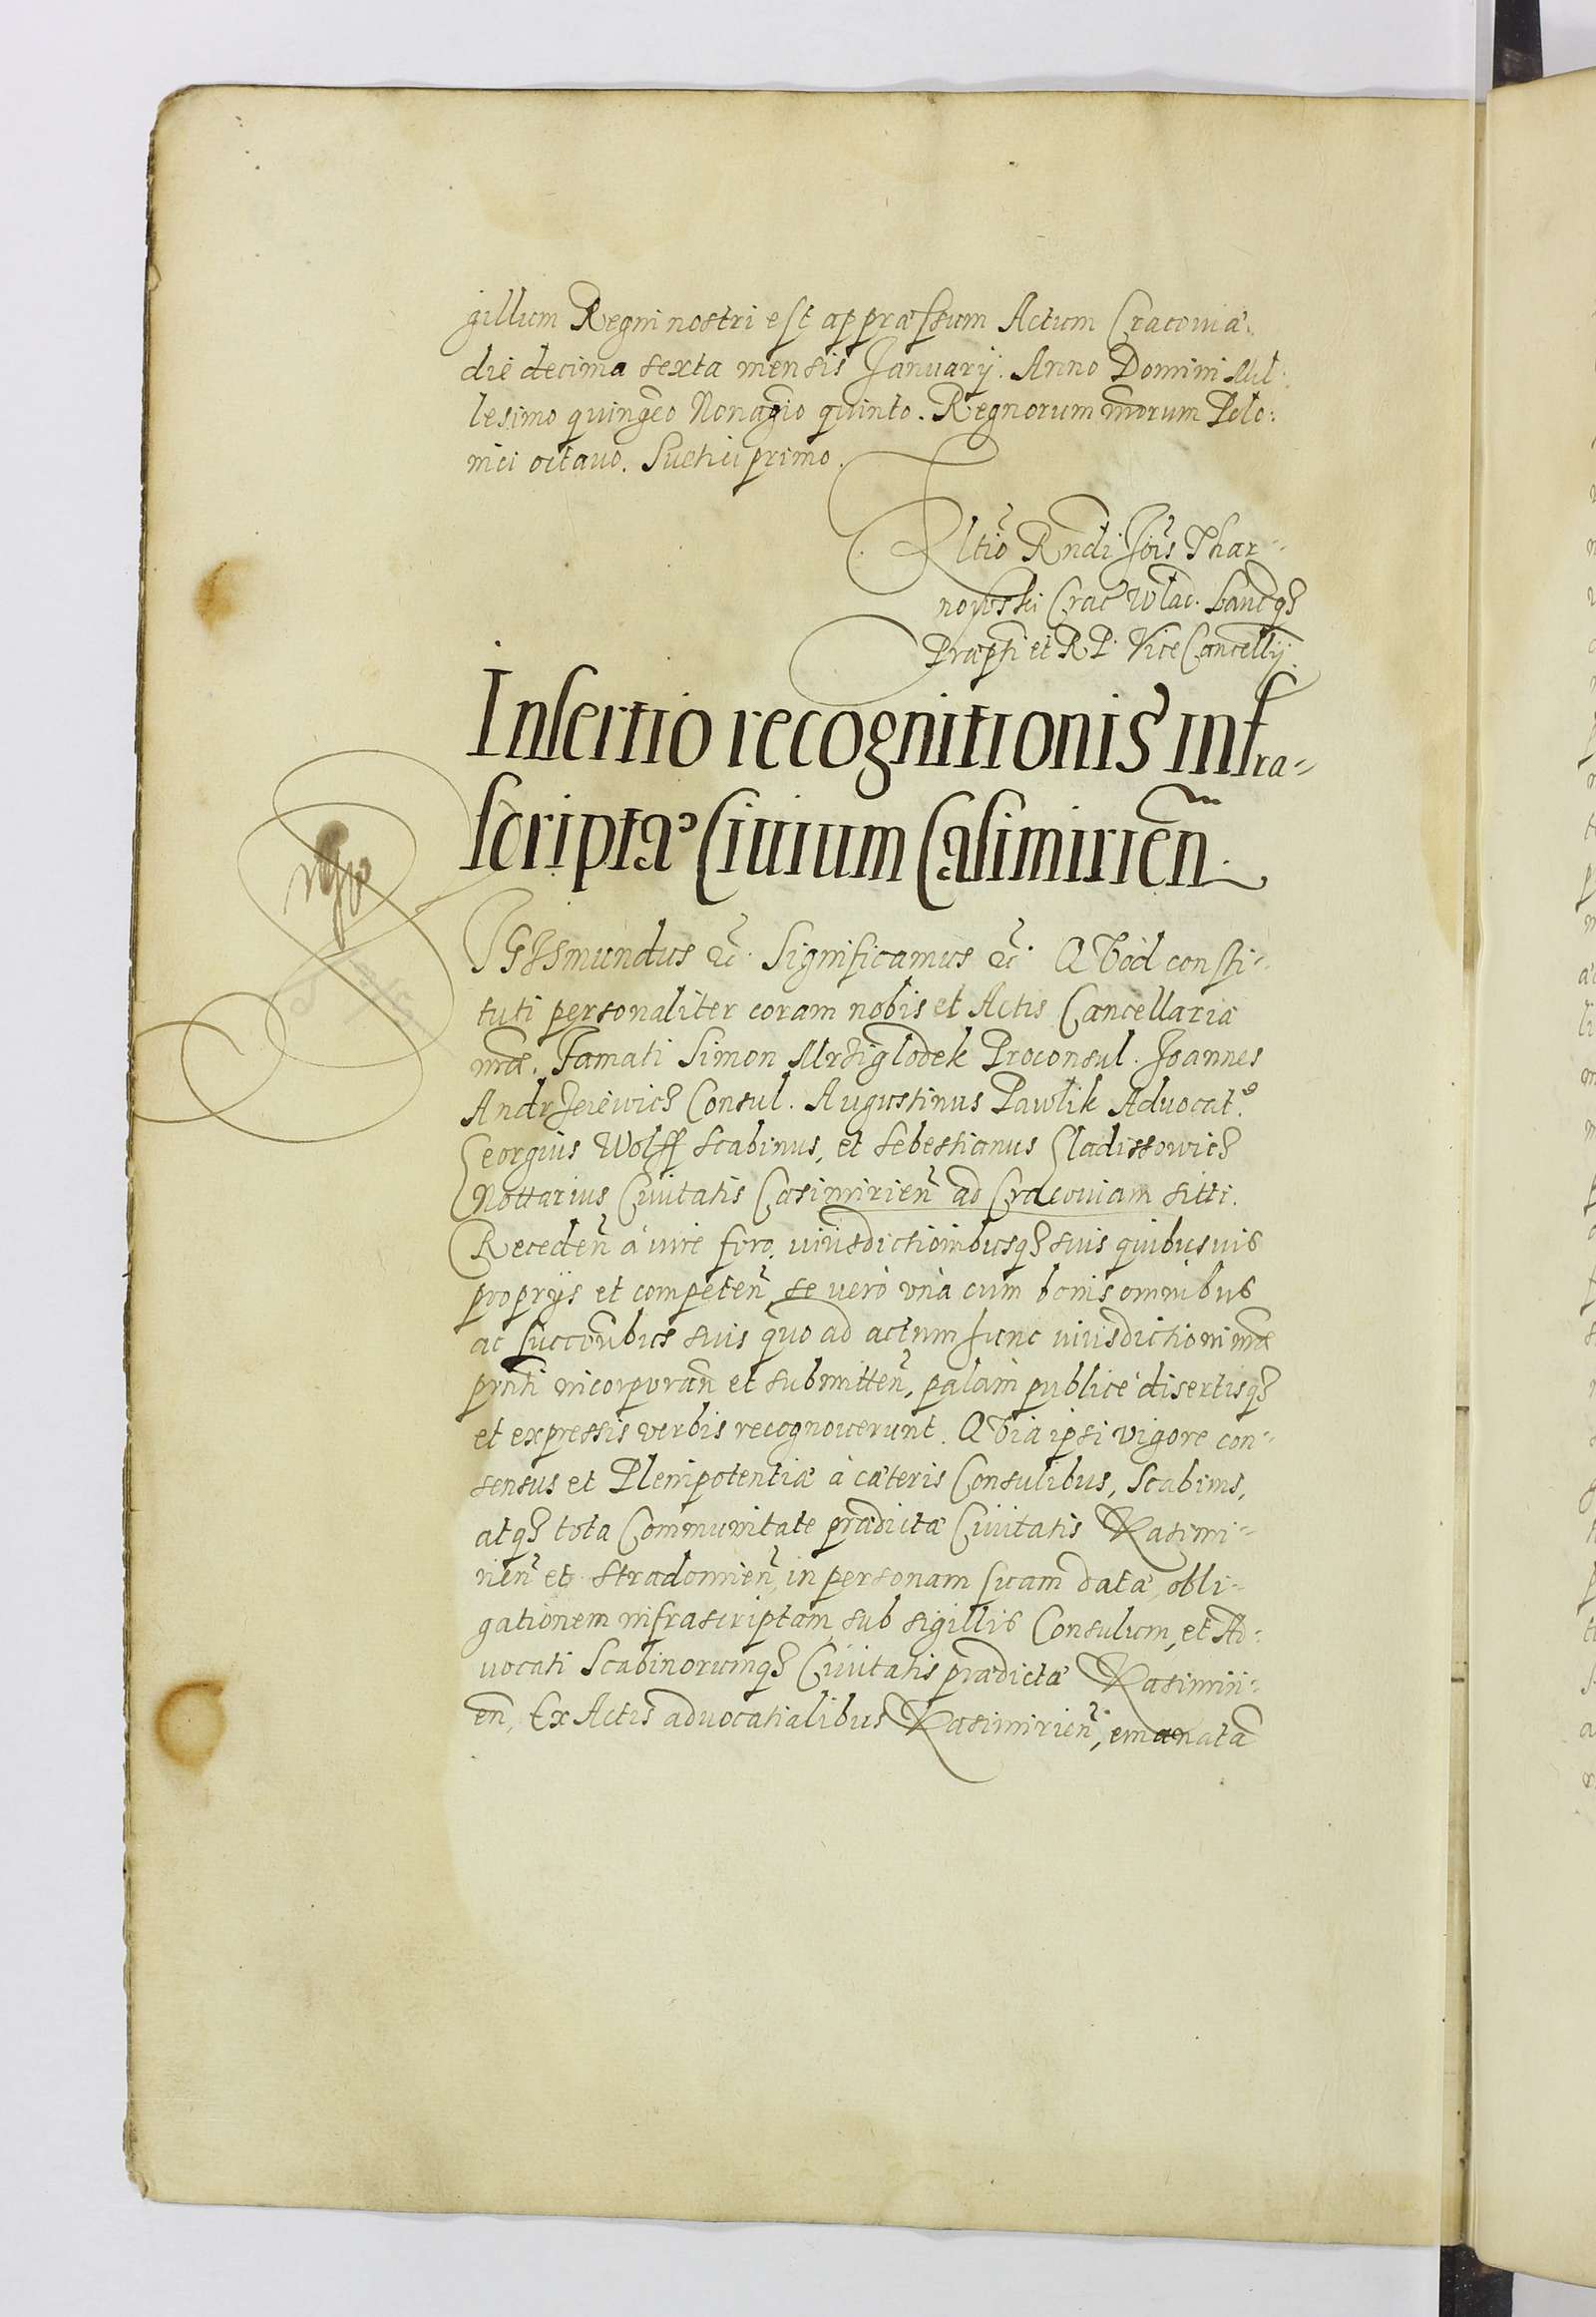 gillum Regni nostri est appræssum Actum Cracouiæ.
die decima sexta mensis Januarij. Anno Domini Mil:
lesimo quingẽo Nonagĩo quinto. Regnorum nr̃orum Polo:
nici octauo. Suetici primo.
Rltiõ Rndi Joĩs Thar-
nowski Crac̃ Wlad. Lancq3
Præpti et R P. Vice Cancellij.
Insertio recognitionis infra-
scriptæ Ciuium Casimirien̄.
SIGISmundus &c̃. Significamus &c̃. QVod consti-
tuti personaliter coram nobis et Actis Cancellariæ
nr̃æ. Famati Simon Mrziglodek Proconsul. Joannes
Andrzeiewicz Consul. Augustinus Pawlik Aduocat9.
Georgius Wolff Scabinus, et Sebestianus Gladissowicz
Nottarius Ciuitatis Casimirien̄ ad Cracouiam sitti.
Receden̄ à iure foro, iurisdictionibusq3 suis quibusuis
proprijs et competen̄, se verò vnà cum bonis omnibus
ac succoribus suis quo ad actum hunc iurisdictioni nr̃æ
prn̄ti incorporan̄ et submitten̄, palàm publicè disertisq3
et expressis verbis recognouerunt. QVia ipsi vigore con-
sensus et Plenipotentiæ à cæteris Consulibus, Scabinis,
atq3 tota Communitate prædictæ Ciuitatis Kasimi-
rien̄ et Stradomien̄, in personam suam datæ, obli-
gationem infrascriptam, sub sigillis Consulum, et Ad:
uocati Scabinorumq3 Ciuitatis prædictæ Kasimiri-
en̄, Ex Actis aduocatialibus Kasimirien̄, emanatã